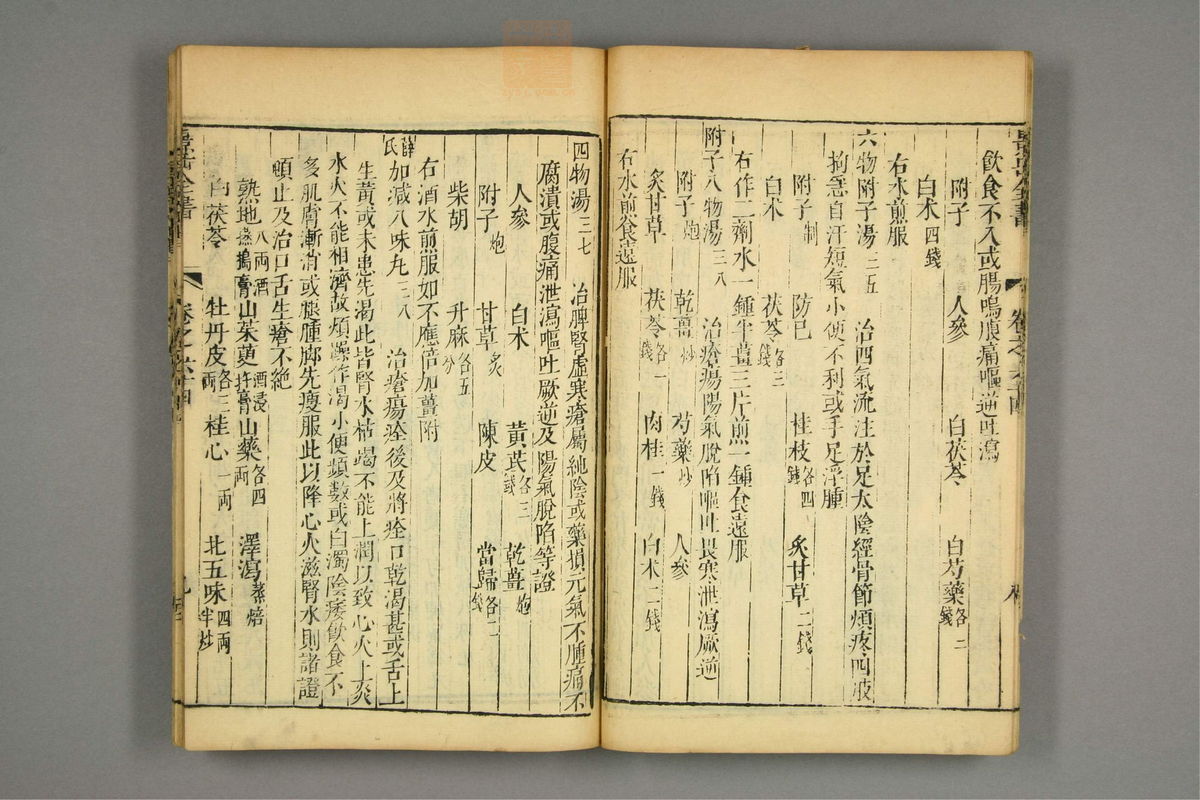 飲食不入或腸鳴腹痛嘔逆吐瀉
附子 人參 白茯苓 白芍藥各二錢
白术四錢
右水煎服
六物附子湯二五 治四氣流注於足太陰經骨節煩疼四肢
拘急自汗短氣小便不利或手足浮腫
附子制 防己 桂枝各四錢 炙甘草二錢
白术 茯苓各三錢
右作二劑水一鍾半薑三片煎一鍾食遠服
附子八物湯三八 治瘡瘍陽氣脫陷嘔吐畏寒泄瀉厥逆
附子炮 乾薑炒 芍藥炒 人參
炙甘草 茯苓各一錢 肉桂一錢 白术二錢
右水煎食遠服
四物湯三七 治脾腎虛寒瘡屬純陰或藥損元氣不腫痛不
腐潰或腹痛泄瀉嘔吐厥逆及陽氣脫陷等證
人參 白术 黃芪各三錢 乾薑炮
附子炮 甘草炙 陳皮 當歸各二錢
柴胡 升麻各五分
右酒水煎服如不應倍加薑附
薛氏加減八味丸三八 治瘡瘍痊後及將痊口乾渴甚或舌上
生黃或未患先渴此皆腎水枯竭不能上潤以致心火上炎
水火不能相濟故煩躁作渴小便頻數或白濁陰痿飲食不
多肌膚漸消或腿腫腳先瘦服此以降心火滋腎水則諸證
頓止及治口舌生瘡不絕
熟地八兩酒蒸搗膏 山茱萸酒浸杵膏 山藥各四兩 澤瀉蒸焙
白茯苓 牡丹皮各三兩 桂心一兩 北五味四兩半炒
景岳全書
卷之六十四